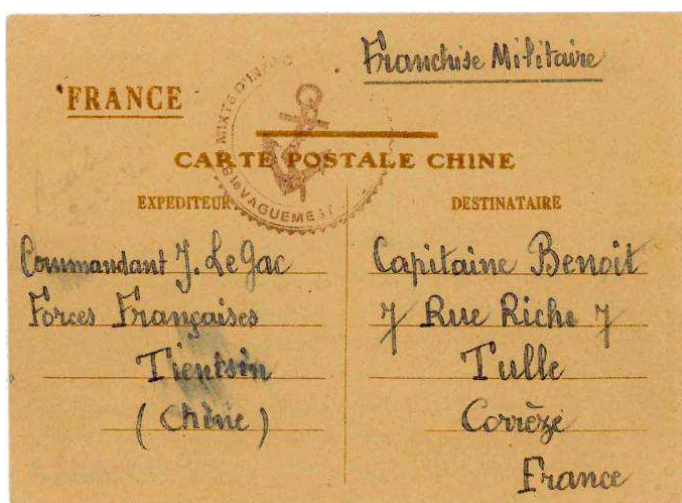 Franchise Militaire
FRANCE
MIXTE D'INF
VAGUEMEST
CARTE POSTALE CHINE
EXPEDITEUR
Commandant J. Le Gac
Forces Françaises
Tientsin
(Chine)
DESTINATAIRE
Capitaine Benoit
7 Rue Riche 7
Tulle
Corrèze
France